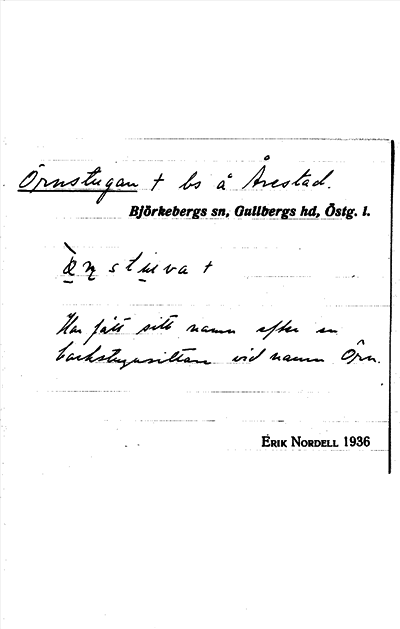 Örnstugan + bs å Årestad.
Björkebergs sn, Gullbergs hd, Östg. l.
stuva +
Har fått sitt namn efter en
backstugusittare vid namn Örn.
ERIK NORDELL 1936